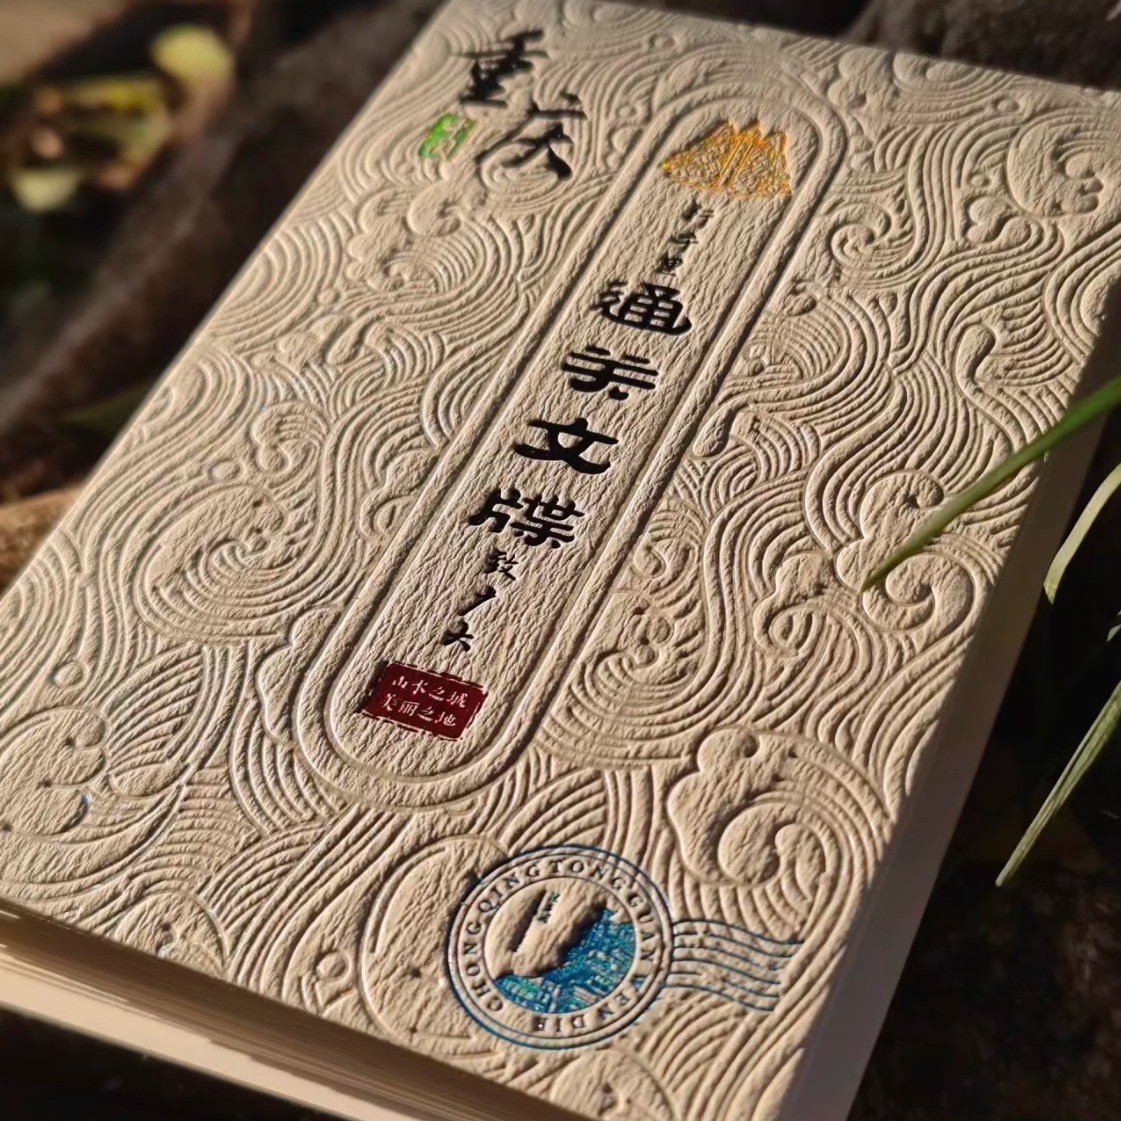 重庆
行千里
通关文牒
致广大
山水之城
美丽之地
CHONGQING TONGGUAN WEN DIE